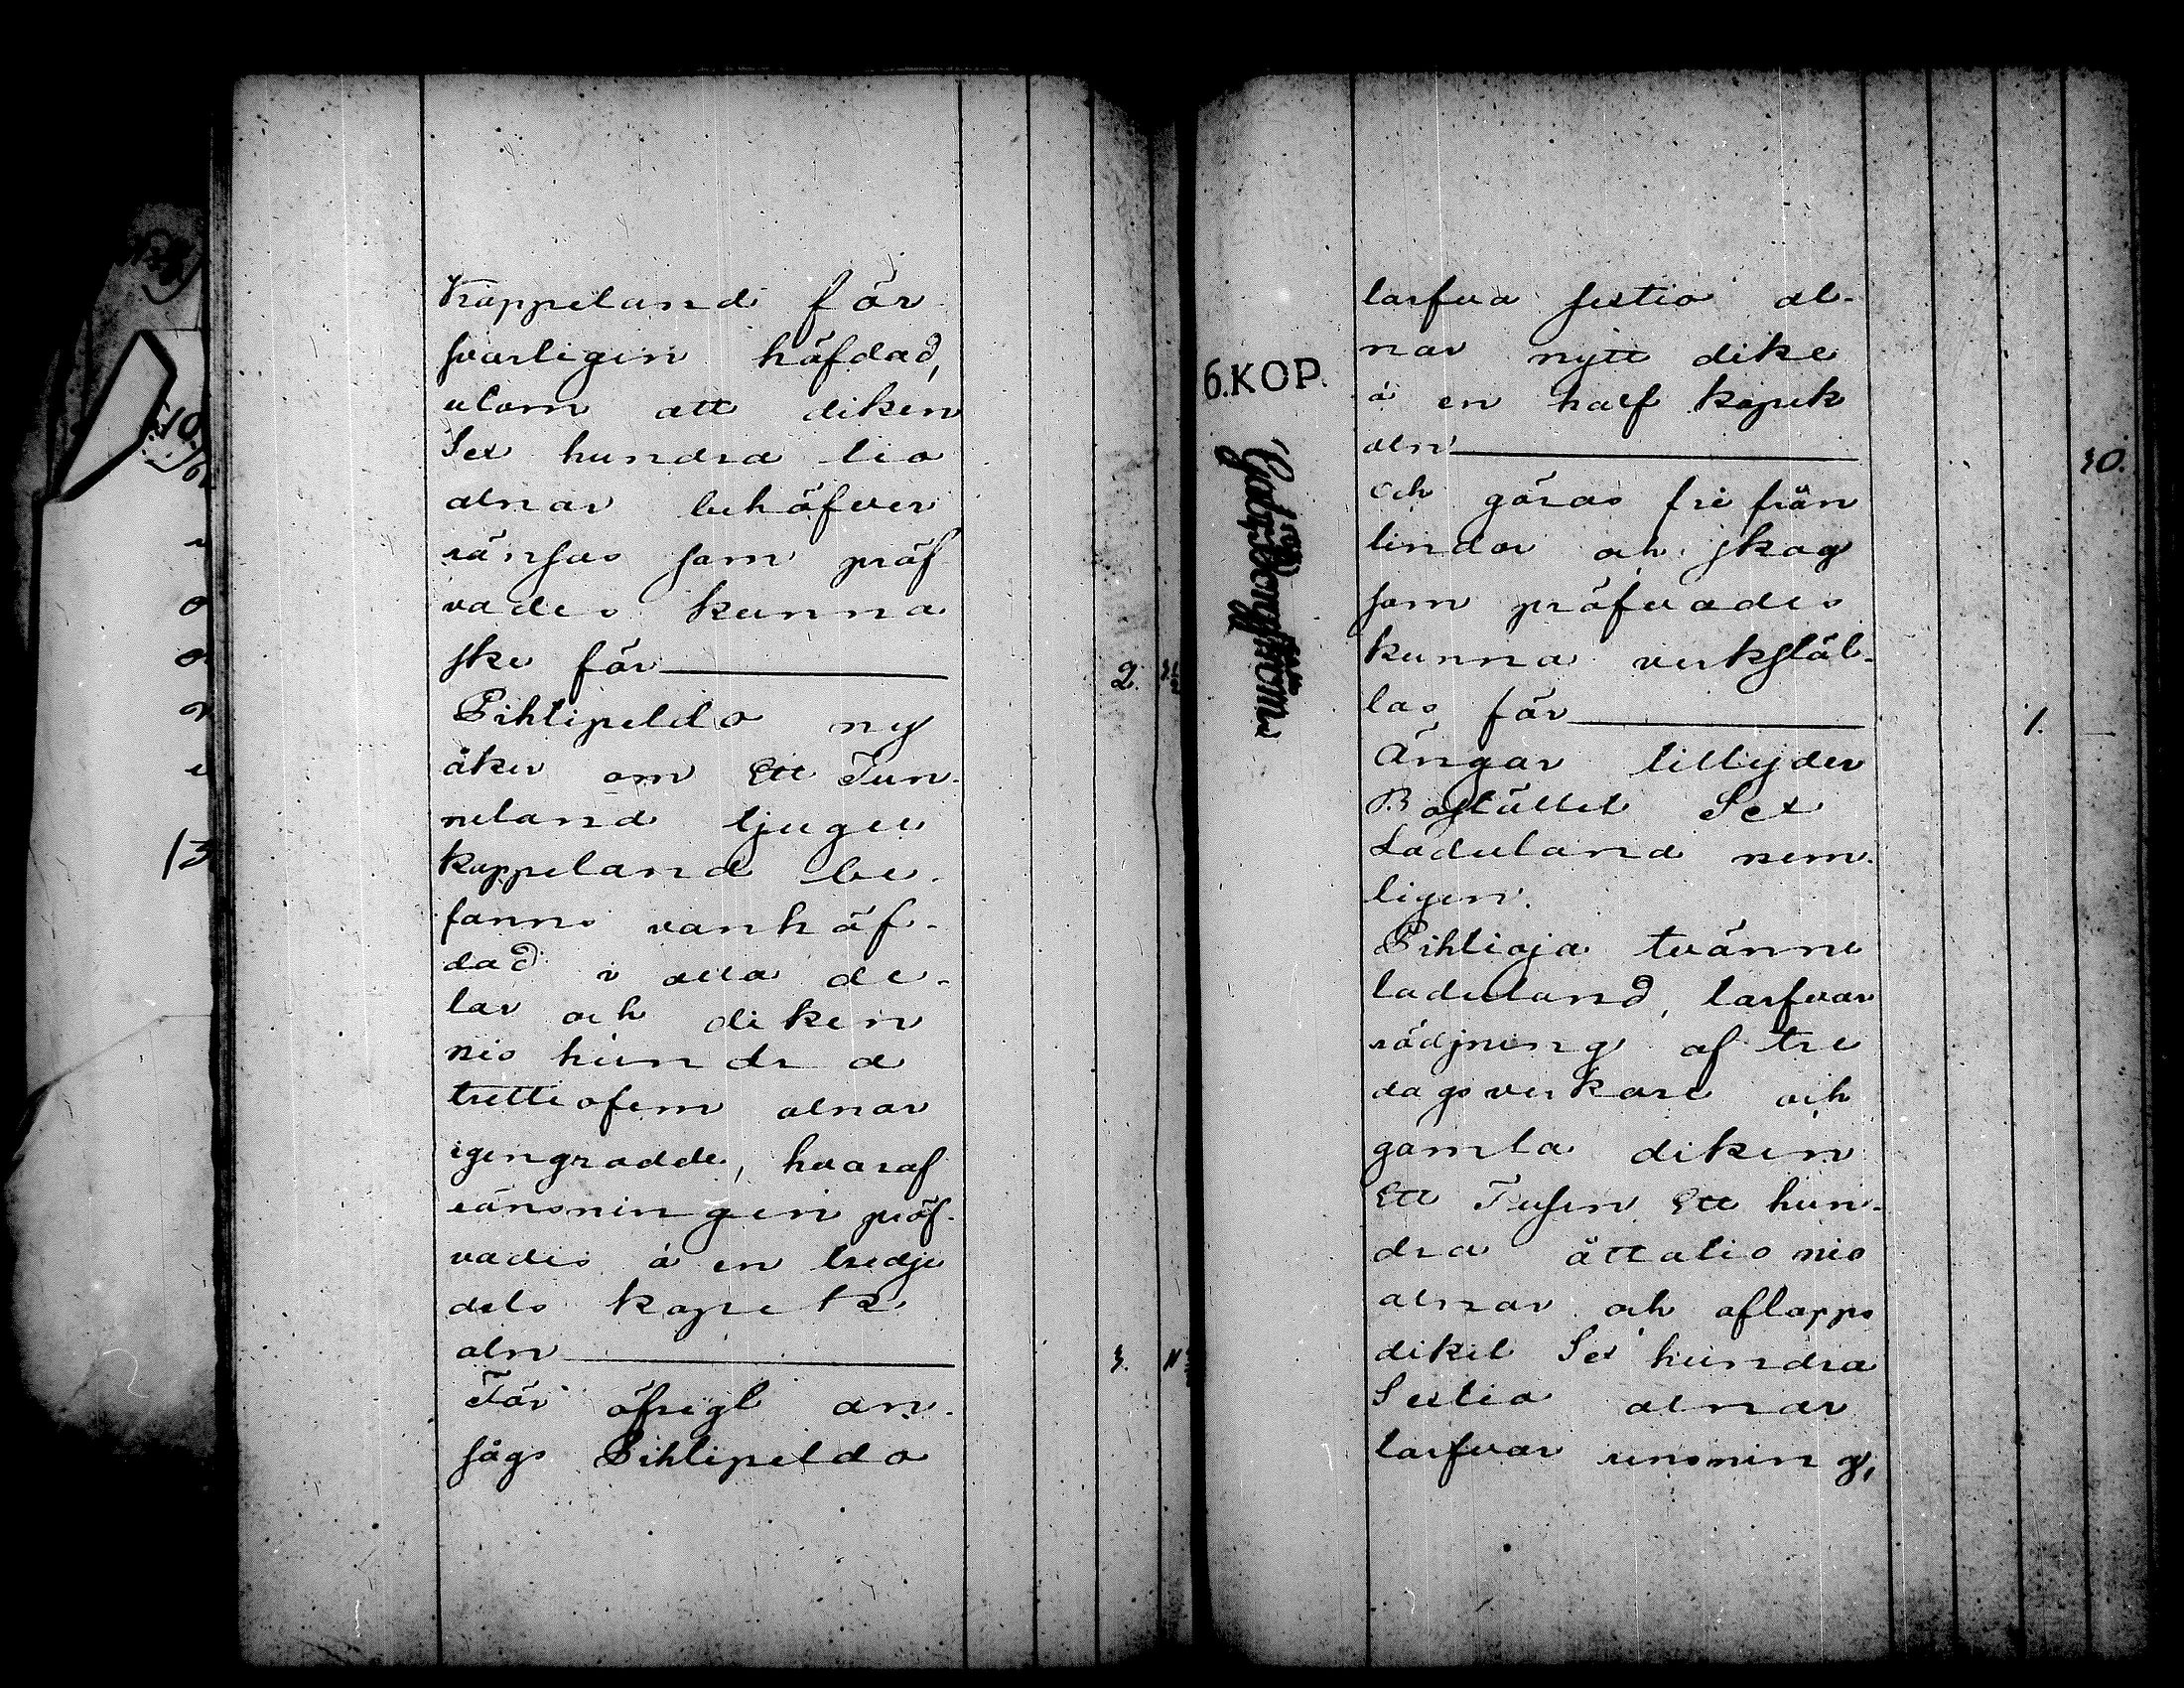 Kappeland för
svarligen häfdad,
utom att diken
Sex hundra tio
alnar behöfver
ränsas som pröf
vades kunna
ske för
2.
Pihlipeldo ny
åker om Ett Tun-
neland tjugu
kappeland be-
fanns vanhäf-
dad i alla de-
lar och diken
nio hundra
trettiofem alnar
igengrodde, hvaraf
ränsningen pröf-
vades á en tredje
dels kopek
aln
3.
För öfrigt an-
sågs Pihlipeldo
6. KOP.
tarfva sextio al-
nar nytt dike
á en half kopek
aln
30.
och göras fri från
lindor och skog
som pröfvades
kunna verkstäl-
las för
1. —
Ängar tillyder
Bostället Sex
Laduland nem-
ligen.
Pihlioja tvänne
laduland, tarfvar
rödjning af tre
dagsverkare och
gamla diken
Ett Tusen Ett hun-
dra åttatio nio
alnar och aflopps
diket Sex hundra
Sextio alnar
tarfvar rensning,
10
13